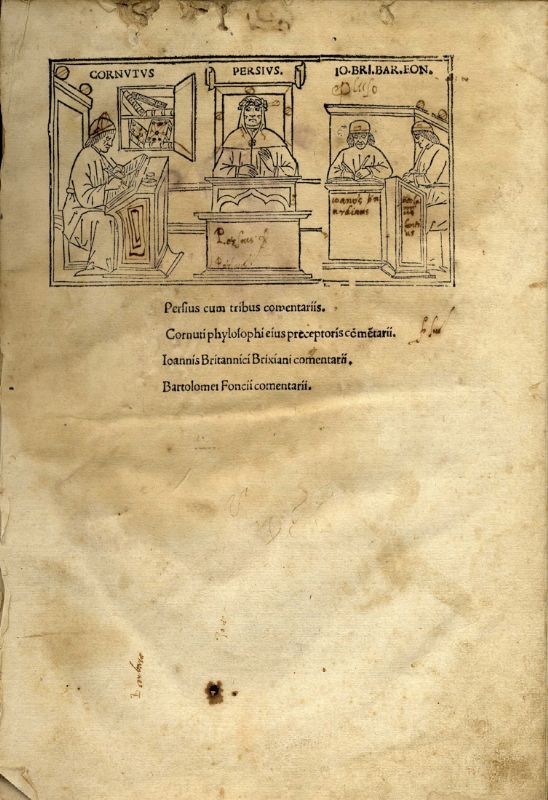 CORNVTVS
PERSIVS.
IO.BRI.BAR.FON.
Persius cum tribus comentariis.
Cornuti phylosophi eius preceptoris cōmētarii.
Ioannis Britannici Brixiani comentarii.
Bartolomei Foncii comentarii.